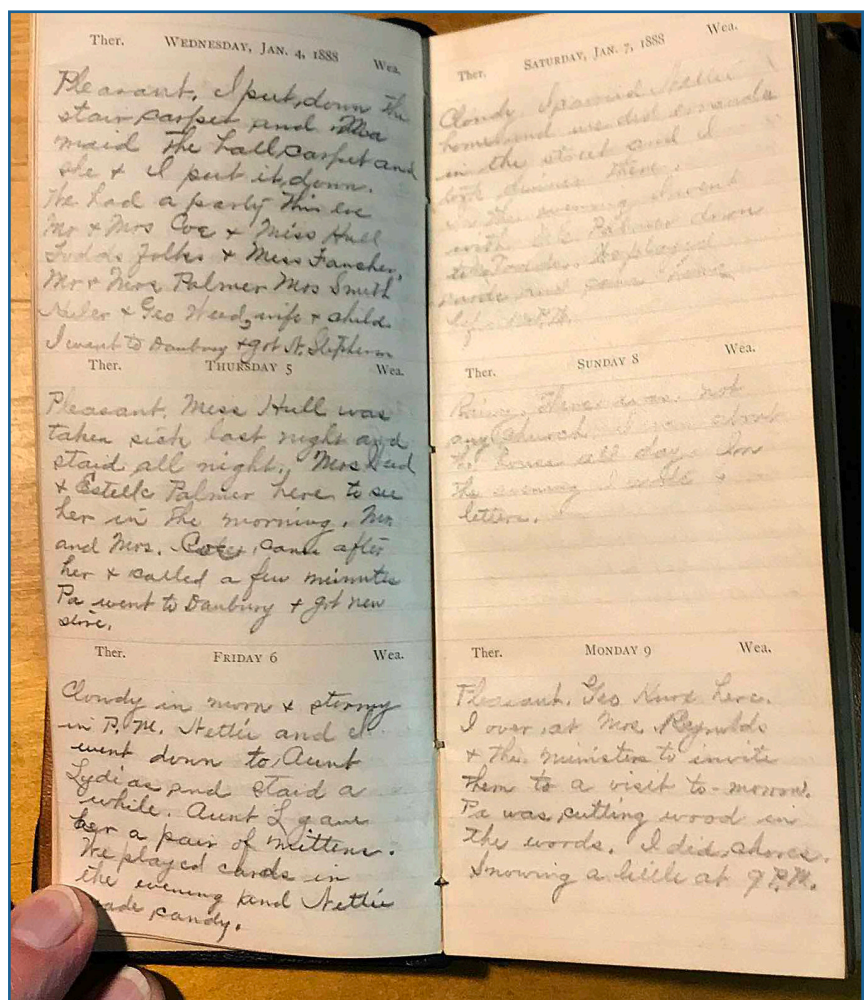 Ther. WEDNESDAY, JAN. 4, 1888 Wea.
Pleasant. I put down the
stair carpet and Ma
maid the hall carpet and
she & I put it down.
We had a party this eve
Mr & Mrs Coe & Miss Hull
Todds folks & Miss Fancher,
Mr & Mrs Palmer Mrs Smith
& Geo Weed, wife & child.
I went to Danbury & got N.
Ther. THURSDAY 5 Wea.
Pleasant. Miss Hull was
taken sick last night and
staid all night. Mrs
& Estelle Palmer here to see
her in the morning. Mr.
and Mrs. Coe came after
her & called a few minutes
Pa went to Danbury & got new
Ther. FRIDAY 6 Wea.
Cloudy in morn & stormy
in P.M. Nettie and I
went down to Aunt
Lydias and staid a
while. Aunt L gave
her a pair of mittens.
We played cards in
the evening and Nettie
made candy.
Ther. SATURDAY, JAN. 7, 1888 Wea.
Cloudy. I carried Nettie
home and we did errands
in the street and I
took dinner there.
In the evening I went
with Palmer down
to Todds. We played
cards and came home
P.M.
Ther. SUNDAY 8 Wea.
Rainy. There was not
any church. I was about
the house all day. In
the evening I wrote
letters.
Ther. MONDAY 9 Wea.
Pleasant. Geo Knox here.
I over at Mrs. Reynolds
& the ministers to invite
them to a visit to-morow.
Pa was cutting wood in
the woods. I did chores.
Snowing a little at 9 P.M.